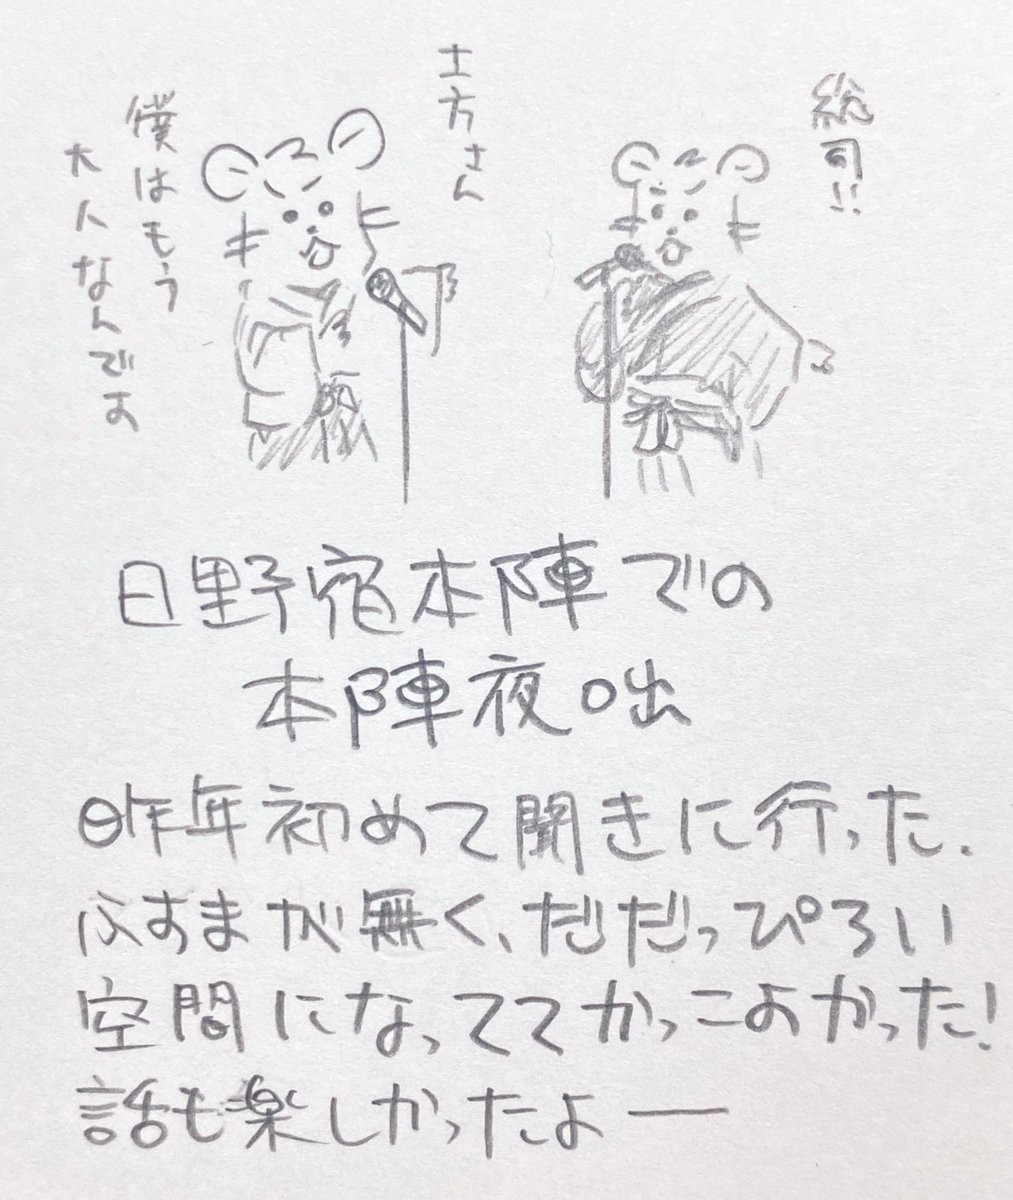 総司!!
土方さん
僕はもう
大人なんです
日野宿本陣での
本陣夜咄
昨年初めて聞きに行った.
ふすまが無く、だだっぴろい
空間になっててかっこよかった!
話も楽しかったよー